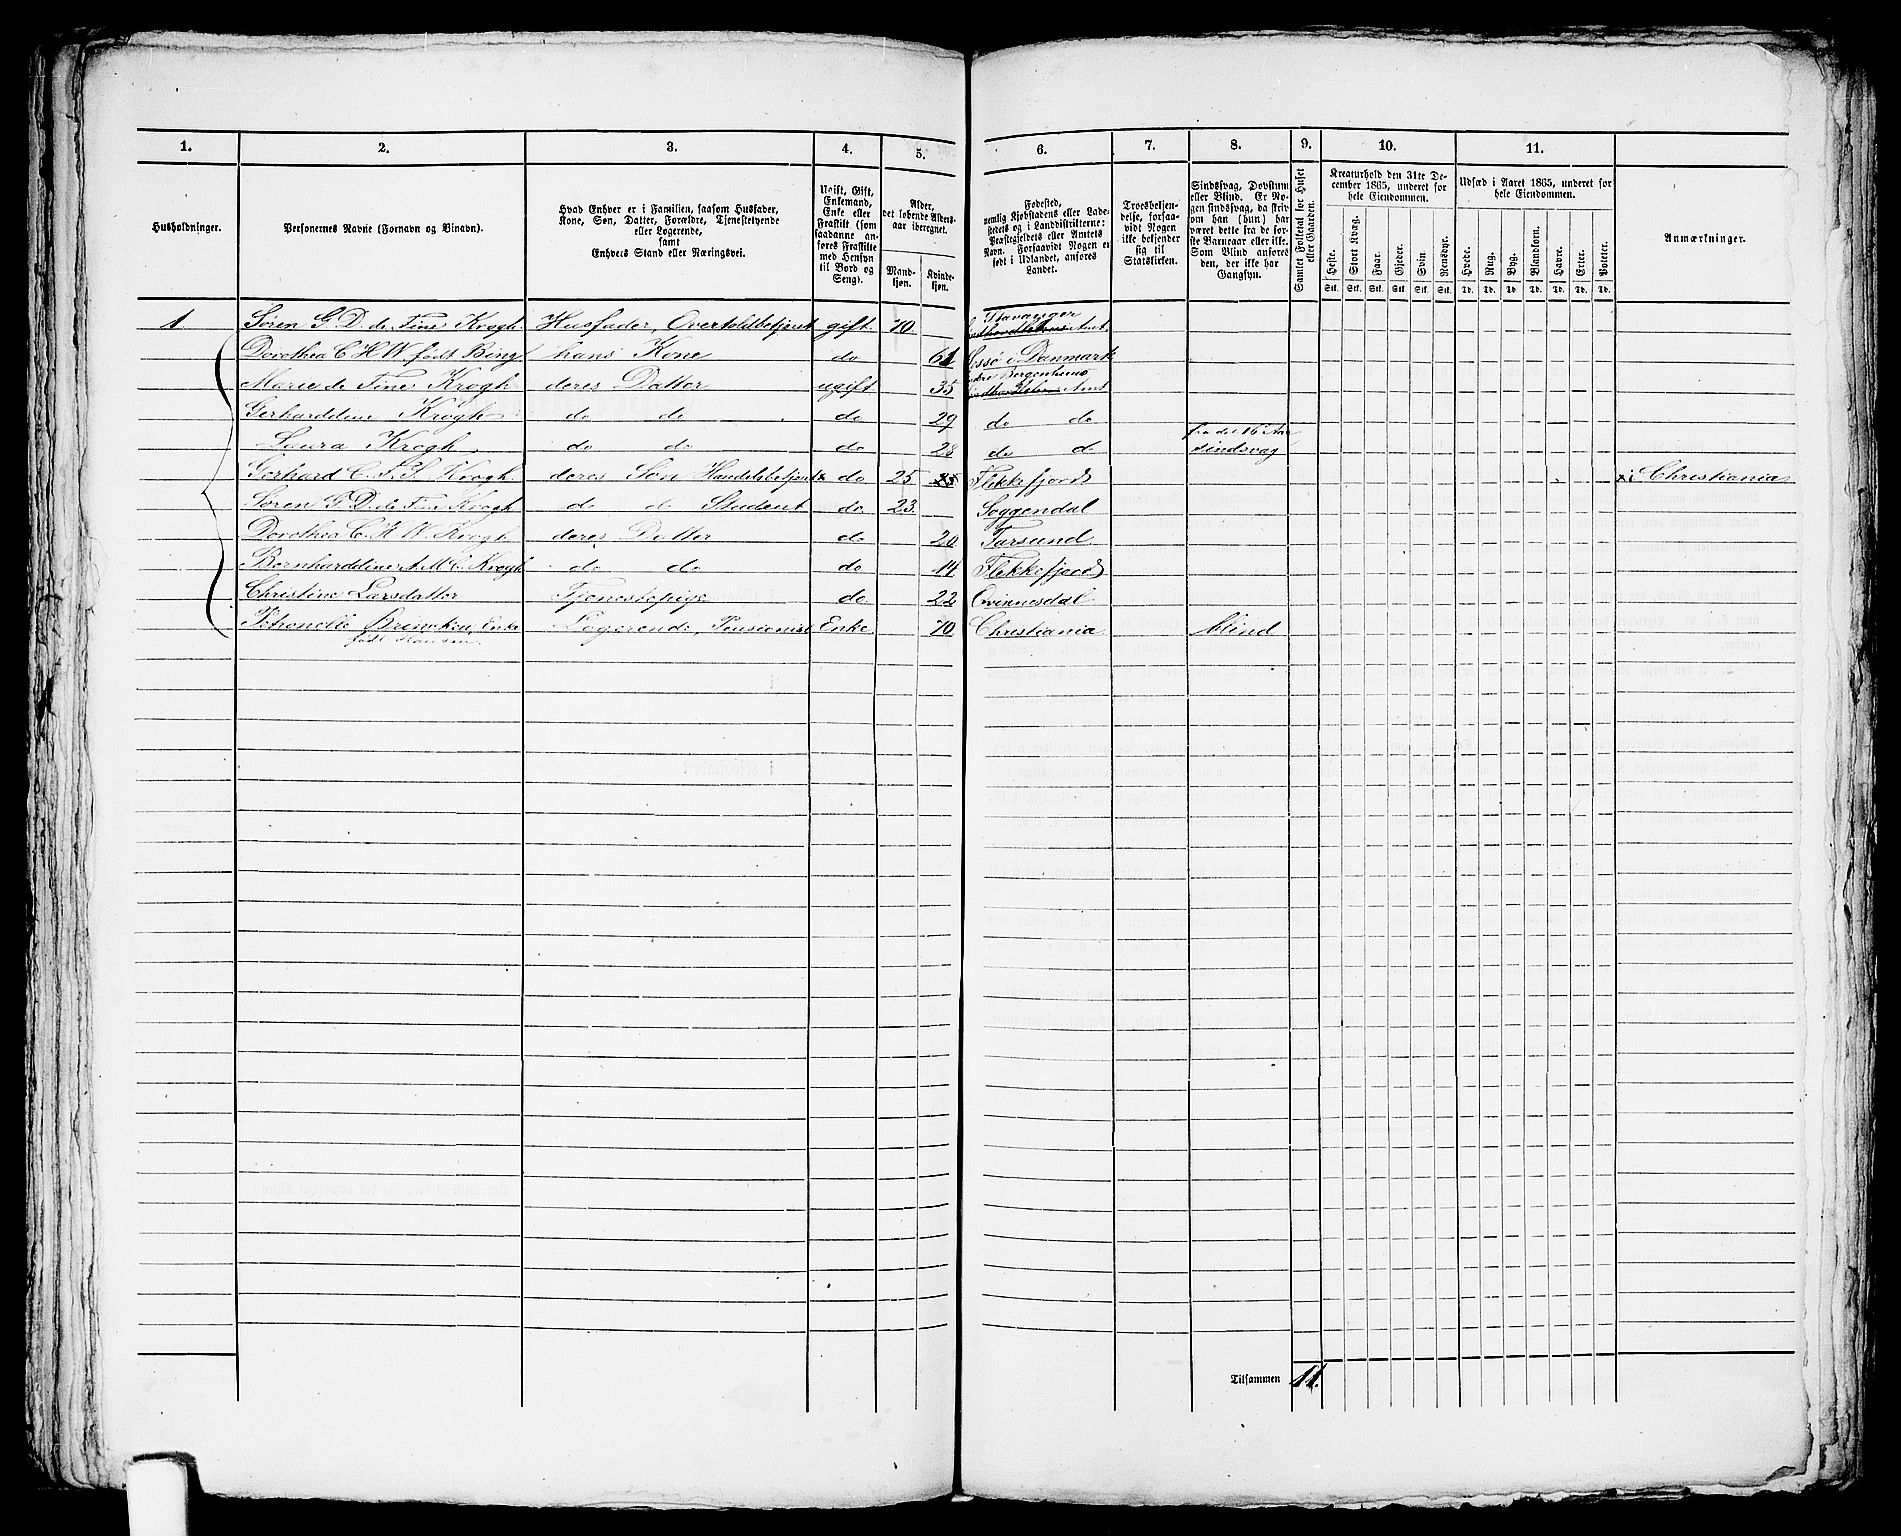 1. 2. 3. 4. 5. 6. 7. 8. 9. 10. 11.
Husholdninger.
Personernes Navne (Fornavn og Binavn).
Hvad Enhver er i Familien, saasom Husfader,
Kone, Søn, Datter, Forældre, Tjenestetyende
eller Logerende,
samt
Enhvers Stand eller Næringsvei.
Ugift, Gift,
Enkemand,
Enke eller
Fraskilt (som
saadanne an-
føres Fraskilte
med Hensyn
til Bord og
Seng).
Alder,
det løbende Alders-
aar iberegnet.
Mand-
kjøn.
Kvinde-
kjøn.
Fødested,
nemlig Kjøbstadens eller Lade-
stedets og i Landdistrikterne:
Præstegjeldets eller Amtets
Navn. Forsaavidt Nogen er
født i Udlandet, anføres
Landet.
Troesbekjen-
delse, forsaa-
vidt Nogen
ikke bekjender
sig til
Statskirken.
Sindssvag, Døvstum
eller Blind. Er No-
gen sindssvag, da skriv
om han (hun) har
været dette fra de før-
ste Barneaar eller ikke.
Som Blind anføres
den, der ikke har
Gangsyn.
Samlet Folketal for Huset
eller Gaarden.
Kreaturhold den 31te De-
cember 1865, underet for
hele Eiendommen.
Heste. Stort Kvæg. Faar. Gjeder. Svin. Rensdyr.
Stk. Stk. Stk. Stk. Stk. Stk.
Udsæd i Aaret 1865, underet for
hele Eiendommen.
Hvede. Rug. Byg. Blandkorn. Havre. Erter. Poteter.
Td. Td. Td. Td. Td. Td. Td.
Anmærkninger.
1 Søren G. D. de Fine Krogh Husfader, Overtoldbetjent gift 70 Stavanger Amt
Dorothea C H W. født Bing hans Kone do 61 Lessø i Danmark
Marie de Fine Krogh deres Datter ugift 35 Søndre Bergenhus Amt
Gerharddine Krogh do do do 29 do do
Laura Krogh do do do 28 do do fra det 16 Aar Sindsvag
Gerhard C. F. S. Krogh deres Søn Handelsbetjent x do 25 25 Flekkefjord x i Christiania
Søren G. D. de Fine Krogh do do Student do 23. Soggendal
Dorothea C. H W. Krogh deres Datter do 20 Farsund
Bernharddine A. M. C. Krogh do do do 14 Flekkefjord
Christine Larsdatter Tjenestepige do 22 Qvinnesdal
Petronelle Brincken, Enke Logerende, Pensionist Enke 70 Christiania blind
født Hansen
Tilsammen 11.